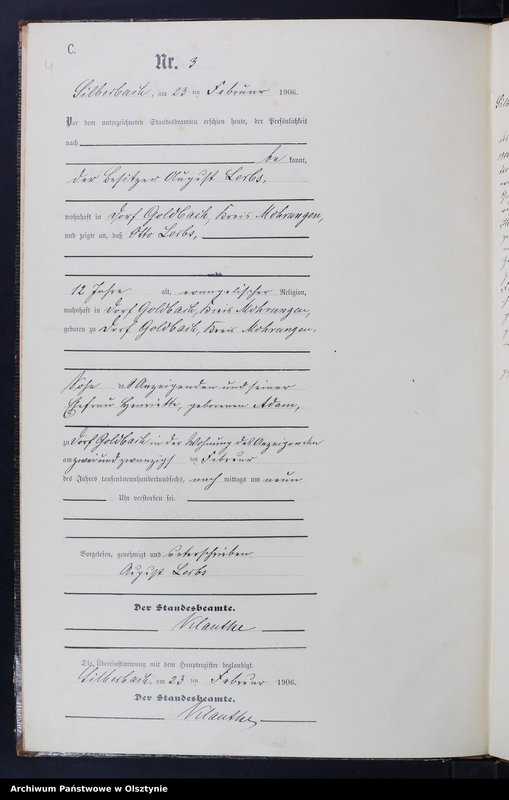 C.
Nr. 3
Silberbach, am 23 ten Februar 1906.
Vor dem unterzeichneten Standesbeamten erschien heute, der Persönlichkeit
nach
be kannt,
der Besitzer August Lerbs,
wohnhaft in Dorf Goldbach, Kreis Mohrungen,
und zeigte an, daß Otto Lerbs,
12 Jahre alt, evangelischer Religion,
wohnhaft in Dorf Goldbach, Kreis Mohrungen,
geboren zu Dorf Goldbach, Kreis Mohrungen,
Sohn des Anzeigenden und seiner
Ehefrau Henriette, geborenen Adam,
zu Dorf Goldbach in der Wohnung des Anzeigenden
am zweiundzwanzigst ten Februar
des Jahres tausendneunhundertundsechs, nach mittags um neun
Uhr verstorben sei.
Vorgelesen, genehmigt und unterschrieben
August Lerbs
Der Standesbeamte.
Klautke
Die Übereinstimmung mit dem Hauptregister beglaubigt.
Silberbach, am 23 ten Februar 1906.
Der Standesbeamte.
Klautke
Archiwum Państwowe w Olsztynie